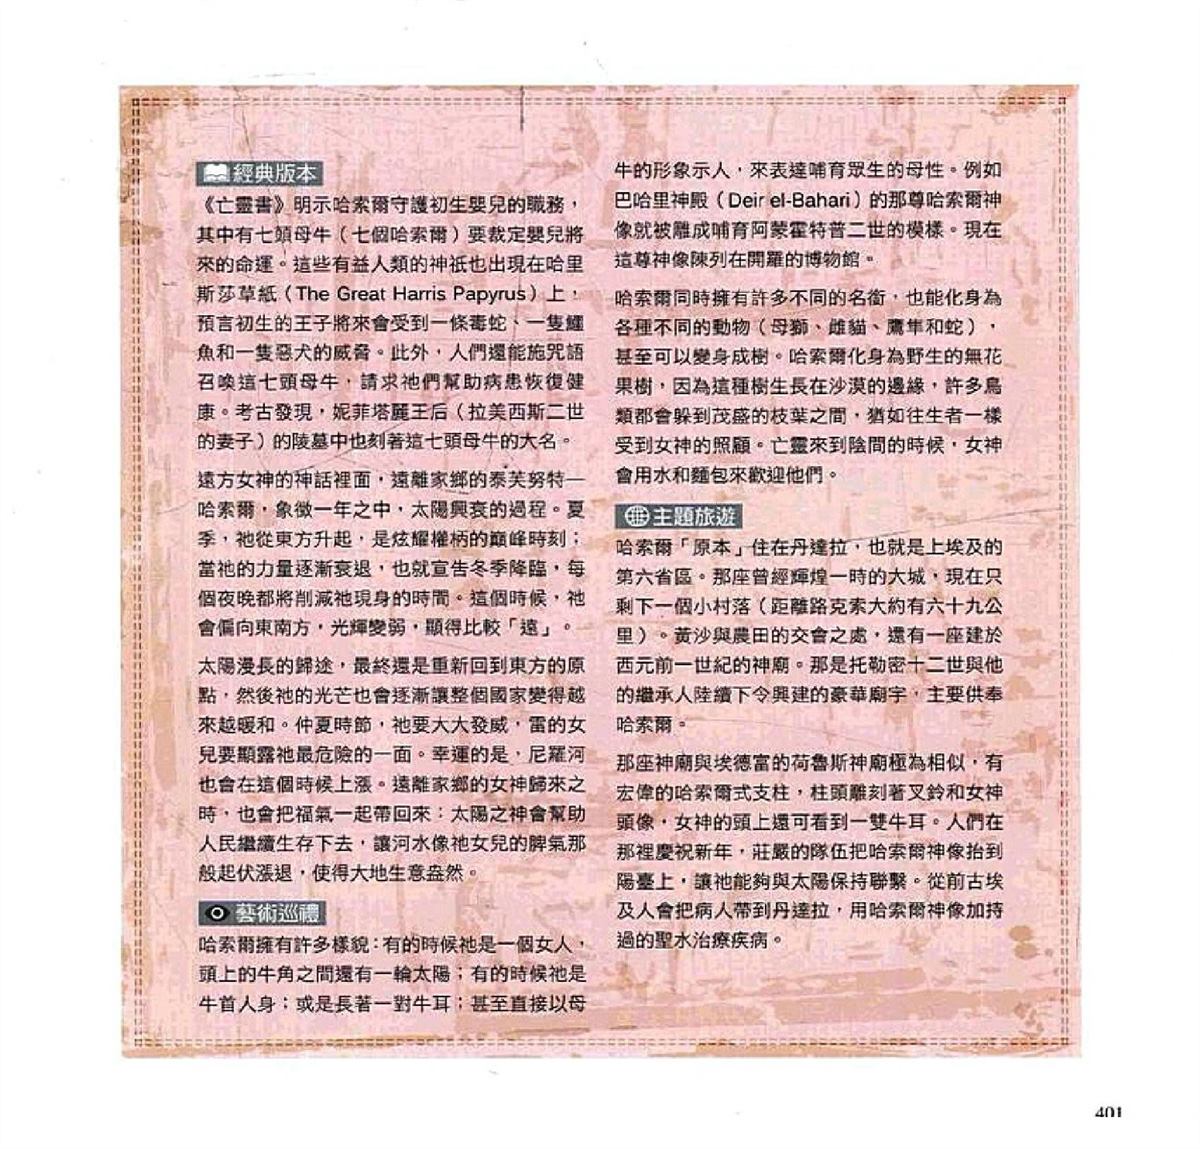 經典版本
《亡靈書》明示哈索爾守護初生嬰兒的職務，
其中有七頭母牛（七個哈索爾）要裁定嬰兒將
來的命運。這些有益人類的神祇也出現在哈里
斯莎草紙（The Great Harris Papyrus）上，
預言初生的王子將來會受到一條毒蛇、一隻鱷
魚和一隻惡犬的威脅。此外，人們還能施咒語
召喚這七頭母牛，請求祂們幫助病患恢復健
康。考古發現，妮菲塔麗王后（拉美西斯二世
的妻子）的陵墓中也刻著這七頭母牛的大名。
遠方女神的神話裡面，遠離家鄉的泰芙努特—
哈索爾，象徵一年之中，太陽興衰的過程。夏
季，祂從東方升起，是炫耀權柄的巔峰時刻；
當祂的力量逐漸衰退，也就宣告冬季降臨，每
個夜晚都將削減祂現身的時間。這個時候，祂
會偏向東南方，光輝變弱，顯得比較「遠」。
太陽漫長的歸途，最終還是重新回到東方的原
點，然後祂的光芒也會逐漸讓整個國家變得越
來越暖和。仲夏時節，祂要大大發威，雷的女
兒要顯露祂最危險的一面。幸運的是，尼羅河
也會在這個時候上漲。遠離家鄉的女神歸來之
時，也會把福氣一起帶回來：太陽之神會幫助
人民繼續生存下去，讓河水像祂女兒的脾氣那
般起伏漲退，使得大地生意盎然。
藝術巡禮
哈索爾擁有許多樣貌：有的時候祂是一個女人，
頭上的牛角之間還有一輪太陽；有的時候祂是
牛首人身；或是長著一對牛耳；甚至直接以母
牛的形象示人，來表達哺育眾生的母性。例如
巴哈里神殿（Deir el-Bahari）的那尊哈索爾神
像就被雕成哺育阿蒙霍特普二世的模樣。現在
這尊神像陳列在開羅的博物館。
哈索爾同時擁有許多不同的名銜，也能化身為
各種不同的動物（母獅、雌貓、鷹隼和蛇），
甚至可以變身成樹。哈索爾化身為野生的無花
果樹，因為這種樹生長在沙漠的邊緣，許多鳥
類都會躲到茂盛的枝葉之間，猶如往生者一樣
受到女神的照顧。亡靈來到陰間的時候，女神
會用水和麵包來歡迎他們。
主題旅遊
哈索爾「原本」住在丹達拉，也就是上埃及的
第六省區。那座曾經輝煌一時的大城，現在只
剩下一個小村落（距離路克索大約有六十九公
里）。黃沙與農田的交會之處，還有一座建於
西元前一世紀的神廟。那是托勒密十二世與他
的繼承人陸續下令興建的豪華廟宇，主要供奉
哈索爾。
那座神廟與埃德富的荷魯斯神廟極為相似，有
宏偉的哈索爾式支柱，柱頭雕刻著叉鈴和女神
頭像，女神的頭上還可看到一雙牛耳。人們在
那裡慶祝新年，莊嚴的隊伍把哈索爾神像抬到
陽臺上，讓祂能夠與太陽保持聯繫。從前古埃
及人會把病人帶到丹達拉，用哈索爾神像加持
過的聖水治療疾病。
401